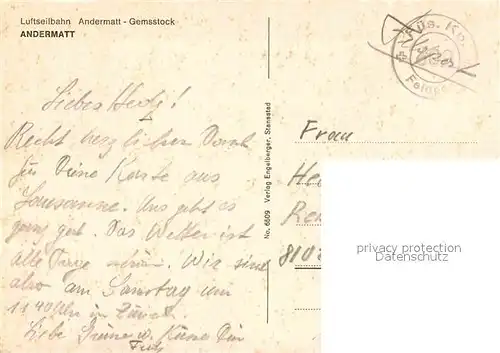 Luftseilbahn Andermatt - Gemsstock
ANDERMATT
Füs. Kp.
Feldpo
Liebes Hedy!
Recht herzlichen Dank
für Deine Karte aus
Lausanne. Uns geht es
ganz gut. Das Wetter ist
alle Tage schön. Wir sind
also am Samstag um
1140 Uhr in Zürich.
Liebe Grüsse u. Küsse Dein
No. 6509 Verlag Engelberger, Stansstad
Frau
He
Re
810
privacy protection